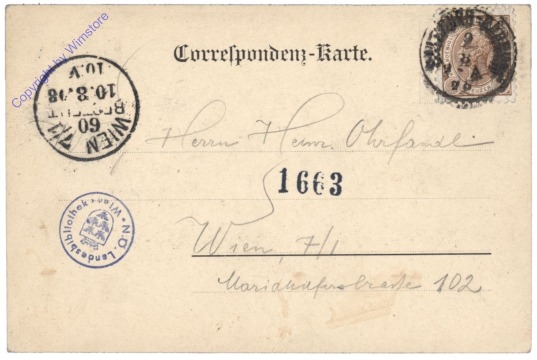 Copyright by Wimstore
Correspondenz-Karte.
WIEN 7/1
60
BESTELLT
10.8.98
10.V
Herrn Heinr. Ohrfandl
1663
Wien, 7/1
Mariahilferstrasse 102
N.Ö. Landesbibliothek * Wien *